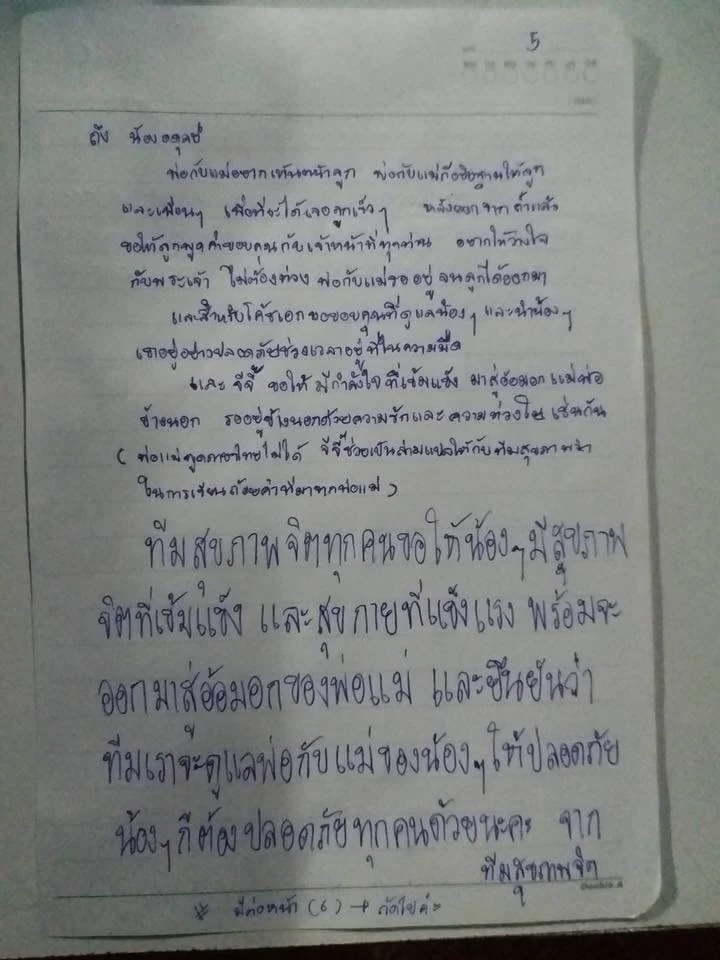 5
ถึง น้องอดุลย์
พ่อกับแม่อยากเห็นหน้าลูก พ่อกับแม่อธิษฐานให้ลูก
และเพื่อนๆ เพื่อที่จะได้เจอลูกเร็วๆ หลังออกจากถ้ำแล้ว
ขอให้ลูกพูดคำขอบคุณกับเจ้าหน้าที่ทุกท่าน อยากให้วางใจ
กับพระเจ้า ไม่ต้องห่วง พ่อกับแม่รออยู่จนลูกได้ออกมา
และสำหรับโค้ชเอกขอขอบคุณที่ดูแลน้องๆ และนำน้องๆ
เขาอยู่อย่างปลอดภัยช่วงเวลาอยู่ที่ในความมืด
และ จีจี้ ขอให้ มีกำลังใจที่เข้มแข็ง มาสู่อ้อมอกแม่พ่อ
ข้างนอก รออยู่ข้างนอกด้วยความรักและความห่วงใย เช่นกัน
(พ่อแม่พูดภาษาไทยไม่ได้ จีจี้ช่วยเป็นล่ามแปลให้กับทีมสุขภาพจิต
ในการเขียนถ้อยคำที่มาจากพ่อแม่)
ทีมสุขภาพจิตทุกคนขอให้น้องๆมีสุขภาพ
จิตที่เข้มแข็ง และสุขกายที่แข็งแรง พร้อมจะ
ออกมาสู่อ้อมอกของพ่อแม่ และยืนยันว่า
ทีมเราจะดูแลพ่อกับแม่ของน้องๆให้ปลอดภัย
น้องๆก็ต้องปลอดภัยทุกคนด้วยนะคะ จาก
ทีมสุขภาพจิต
Double A
* มีต่อหน้า (6) → ถัดไปค่ะ